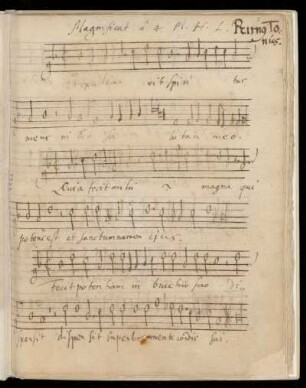 Magnificat à 4 Pl. H. L. Primo To
nus.
Et exulta vit spiri tus
meus in Deo sa lutari meo.
Quia fecit mihi magna qui
potens est et sanctum nomen ejus.
fecit poten tiam in brachio suo Di
spersit dispersit superbos mente cordis sui.